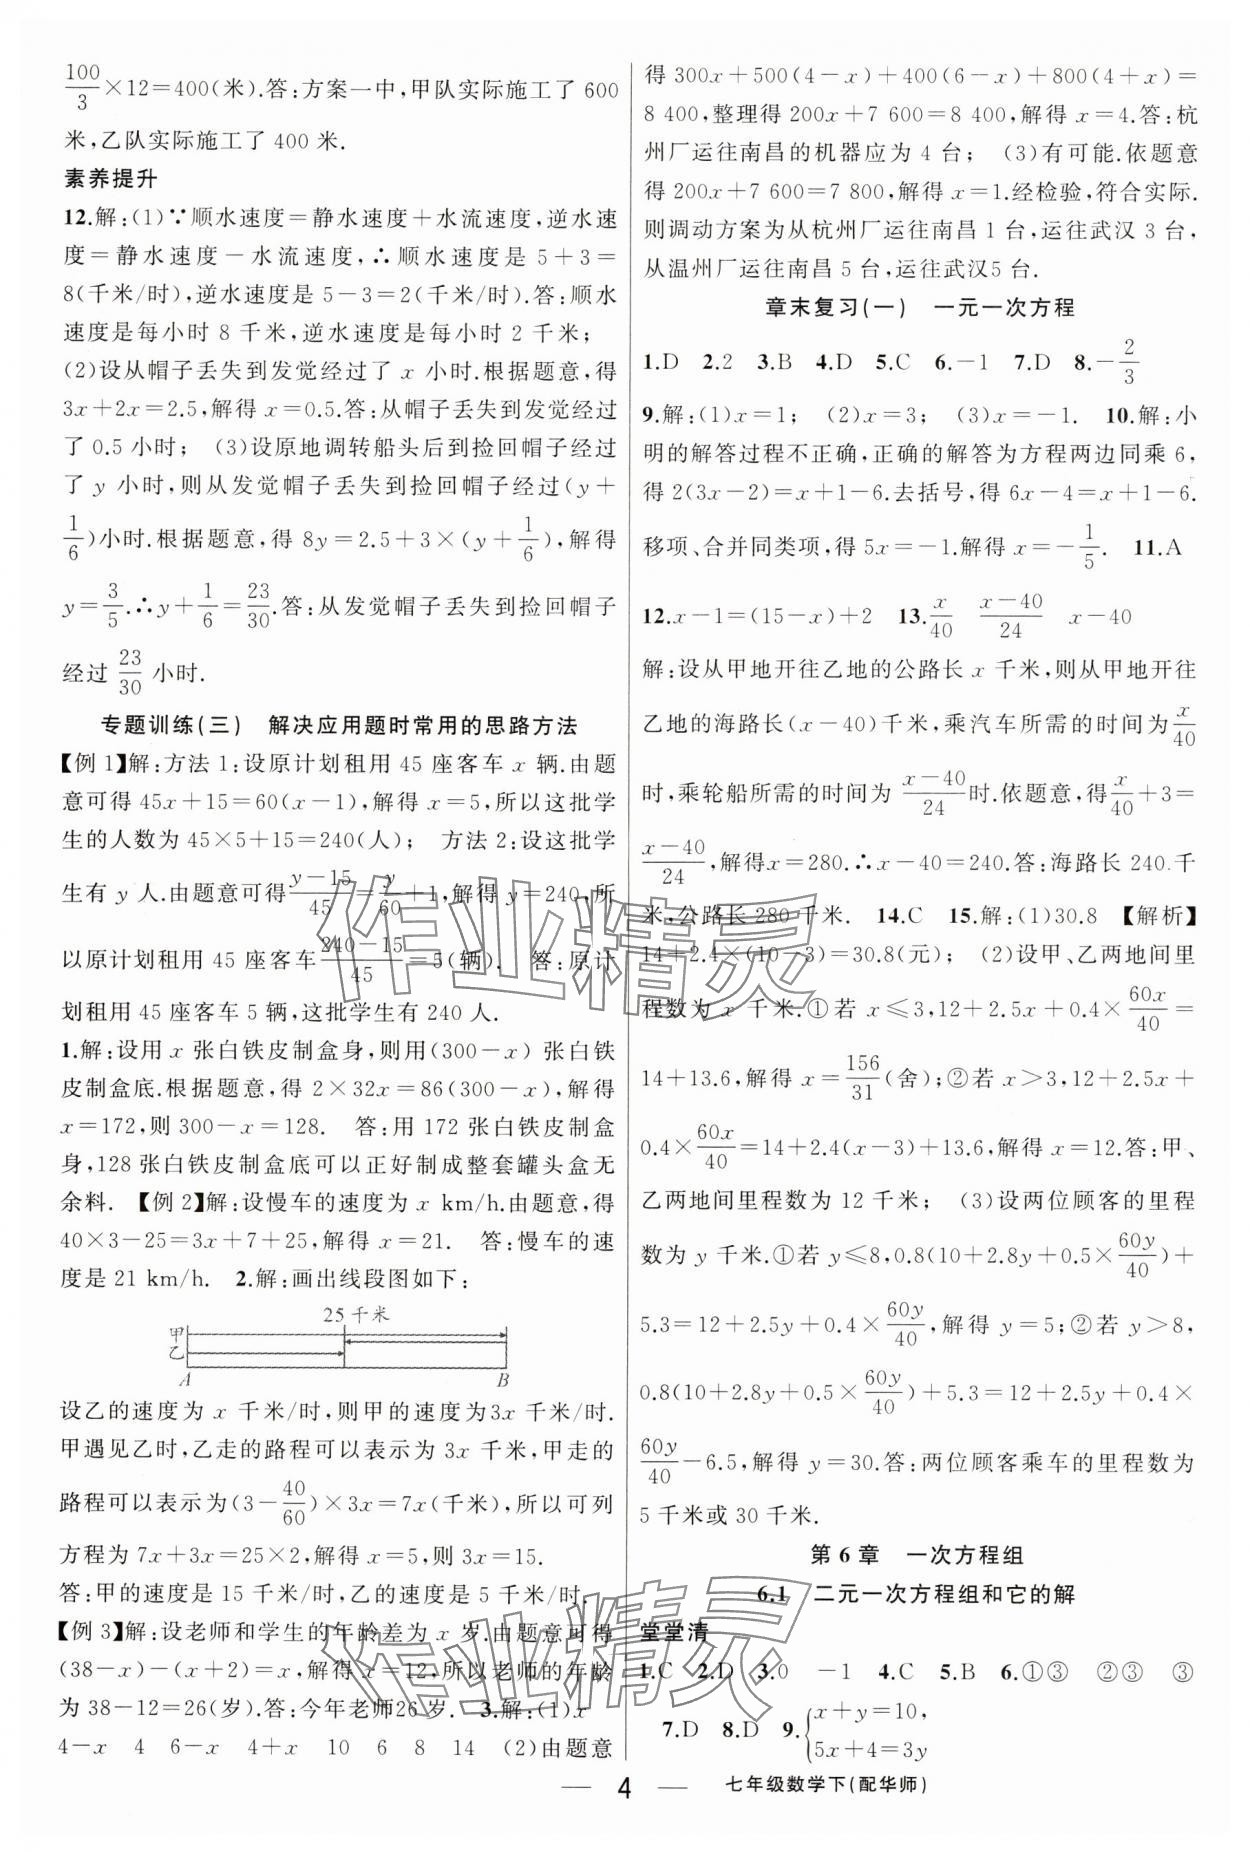 100/3×12=400(米).答:方案一中,甲队实际施工了 600
米,乙队实际施工了 400 米.
素养提升
12.解:(1)∵顺水速度=静水速度+水流速度,逆水速
度=静水速度-水流速度,∴顺水速度是 5+3=
8(千米/时),逆水速度是 5-3=2(千米/时).答:顺水
速度是每小时 8 千米,逆水速度是每小时 2 千米;
(2)设从帽子丢失到发觉经过了 x 小时.根据题意,得
3x+2x=2.5,解得 x=0.5.答:从帽子丢失到发觉经过
了 0.5 小时; (3)设原地调转船头后到捡回帽子经过
了 y 小时,则从发觉帽子丢失到捡回帽子经过(y+
1/6)小时.根据题意,得 8y=2.5+3×(y+1/6),解得
y=3/5.∴y+1/6=23/30.答:从发觉帽子丢失到捡回帽子
经过 23/30 小时.
专题训练(三) 解决应用题时常用的思路方法
【例 1】解:方法 1:设原计划租用 45 座客车 x 辆.由题
意可得 45x+15=60(x-1),解得 x=5,所以这批学
生的人数为 45×5+15=240(人); 方法 2:设这批学
生有 y 人.由题意可得(y-15)/45=y/60+1,解得 y=240,所
以原计划租用 45 座客车(240-15)/45=5(辆). 答:原计
划租用 45 座客车 5 辆,这批学生有 240 人.
1.解:设用 x 张白铁皮制盒身,则用(300-x) 张白铁
皮制盒底.根据题意,得 2×32x=86(300-x),解得
x=172,则 300-x=128. 答:用 172 张白铁皮制盒
身,128 张白铁皮制盒底可以正好制成整套罐头盒无
余料. 【例 2】解:设慢车的速度为 x km/h.由题意,得
40×3-25=3x+7+25,解得 x=21. 答:慢车的速
度是 21 km/h. 2.解:画出线段图如下:
25 千米
甲
乙
A B
设乙的速度为 x 千米/时,则甲的速度为3x 千米/时.
甲遇见乙时,乙走的路程可以表示为 3x 千米,甲走的
路程可以表示为(3-40/60)×3x=7x(千米),所以可列
方程为 7x+3x=25×2,解得 x=5,3x=15.
答:甲的速度是 15 千米/时,乙的速度是 5 千米/时.
【例 3】解:设老师和学生的年龄差为 x 岁.由题意可得
(38-x)-(x+2)=x,解得 x=12,所以老师的年龄
为 38-12=26(岁).答:今年老师26 岁. 3.解:(1)x
4-x 4 6-x 4+x 10 6 8 14 (2)由题意
得 300x+500(4-x)+400(6-x)+800(4+x)=
8 400,整理得 200x+7 600=8 400,解得 x=4.答:杭
州厂运往南昌的机器应为 4 台; (3)有可能.依题意
得 200x+7 600=7 800,解得 x=1.经检验,符合实际.
则调动方案为从杭州厂运往南昌 1 台,运往武汉 3 台,
从温州厂运往南昌 5 台,运往武汉5 台.
章末复习(一) 一元一次方程
1.D 2.2 3.B 4.D 5.C 6.-1 7.D 8.-2/3
9.解:(1)x=1; (2)x=3; (3)x=-1. 10.解:小
明的解答过程不正确,正确的解答为方程两边同乘 6,
得 2(3x-2)=x+1-6.去括号,得 6x-4=x+1-6.
移项、合并同类项,得 5x=-1.解得 x=-1/5. 11.A
12.x-1=(15-x)+2 13.x/40 (x-40)/24 x-40
解:设从甲地开往乙地的公路长 x 千米,则从甲地开往
乙地的海路长(x-40)千米,乘汽车所需的时间为x/40
时,乘轮船所需的时间为 (x-40)/24时.依题意,得x/40+3=
(x-40)/24,解得x=280.∴x-40=240.答:海路长 240 千
米,公路长 280 千米. 14.C 15.解:(1)30.8 【解析】
14+2.4×(10-3)=30.8(元); (2)设甲、乙两地间里
程数为 x 千米.①若 x≤3,12+2.5x+0.4×60x/40=
14+13.6,解得 x=156/31(舍);②若 x>3,12+2.5x+
0.4×60x/40=14+2.4(x-3)+13.6,解得 x=12.答:甲、
乙两地间里程数为 12 千米; (3)设两位顾客的里程
数为 y 千米.①若 y≤8,0.8(10+2.8y+0.5×60y/40)+
5.3=12+2.5y+0.4×60y/40,解得 y=5;②若 y>8,
0.8(10+2.8y+0.5×60y/40)+5.3=12+2.5y+0.4×
60y/40-6.5,解得 y=30.答:两位顾客乘车的里程数为
5 千米或 30 千米.
第 6 章 一次方程组
6.1 二元一次方程组和它的解
堂堂清
1.C 2.D 3.0 -1 4.C 5.B 6.①③ ②③ ③
7.D 8.D 9.{x+y=10,
5x+4=3y
作业精灵
作业精灵
4 七年级数学下(配华师)